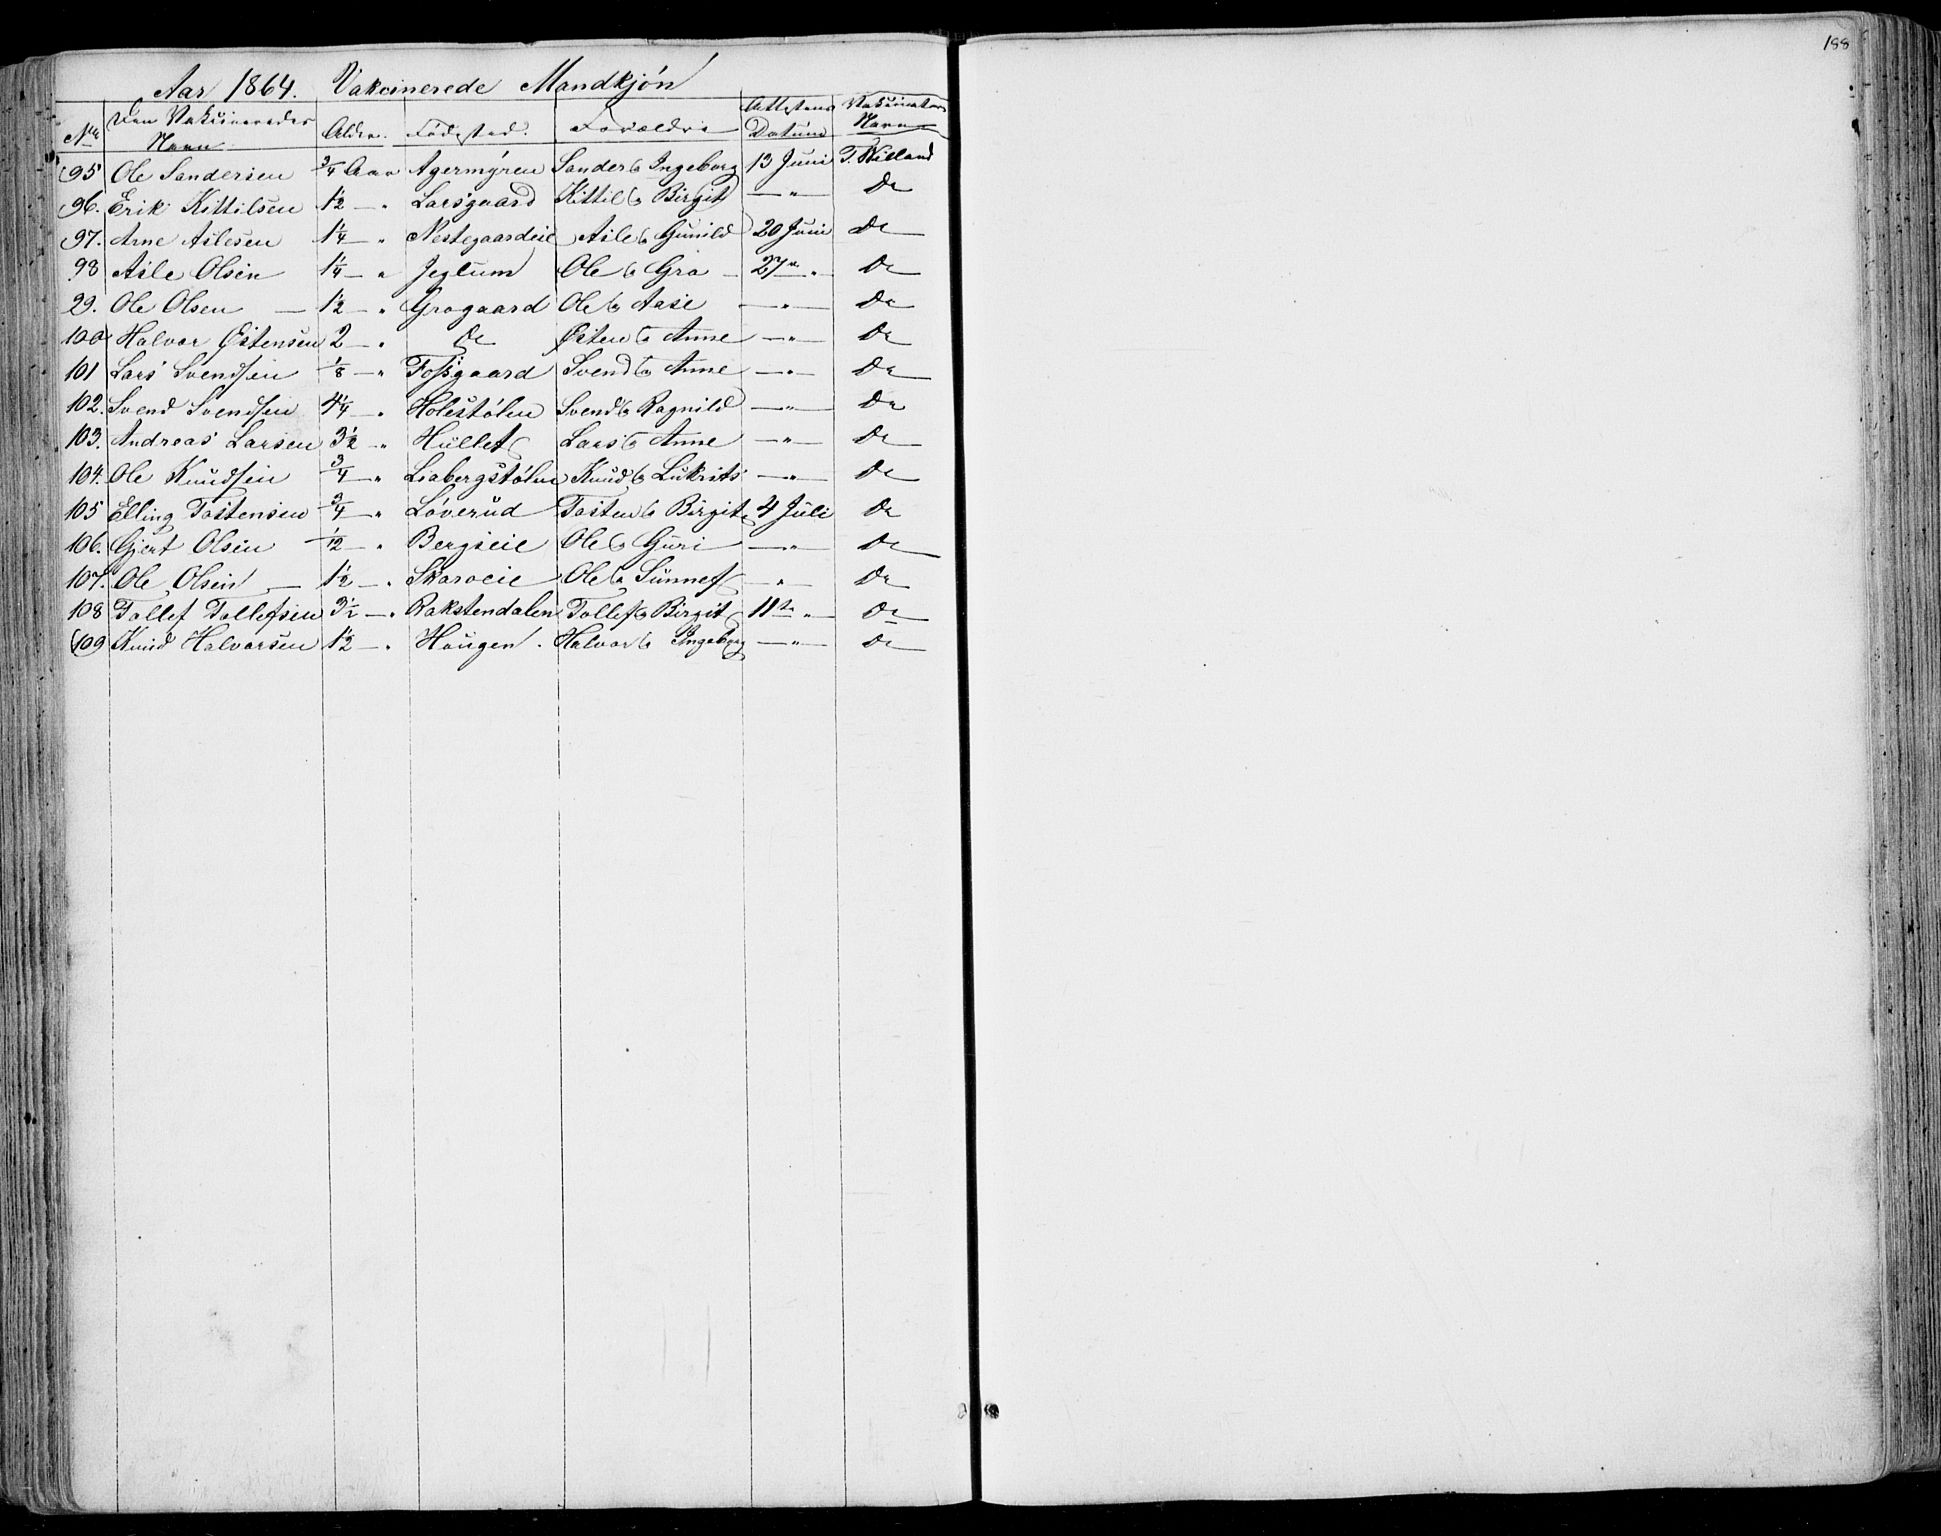 188
Aar 1864. Vakcinerede Mandkjøn
No Den Vakcineredes Navn Alder. Födested. Forældre Attestens Datum Vakcinators Navn
95 Ole Sandersen 3/4 Aar Agermyren Sander & Ingeborg 13 Juni T. Villand
96. Erik Kittilsen 1½ — " Larsgaard Kittil & Birgit — " — Do
97. Arne Aslesen 1¼ " Nestegaardeie Asle & Gunild 20 Juni Do
98 Asle Olsen 1¼ — " Jeglum Ole & Gro — 27de " Do
99. Ole Olsen — 1½ — " Grogaard Ole & Aase — " — Do
100 Halvor Østensen 2 — " Do Østen & Anne — " — Do
101 Lars Svendsen 1/8 — " Fossgaard Svend & Anne — " — Do
102. Svend Svendsen 4¼ — " Holestølen Svend & Ragnild — " — Do
103. Andreas Larsen 3½ " Hullet Lars & Anne — " — Do
104. Ole Knudsen 3/4 — " Liabergstølen Knud & Lukrits — " — Do
105 Elling Tostensen 3/4 — " Løverud Tosten & Birgit 4 Juli Do
106. Gjert Olsen 1/12 — " Bergseie Ole & Guri — " — Do
107. Ole Olsen — 1½ — " Skaroeie Ole & Sunnef — " — Do
108 Tollef Tollefsen 3½ — " Rakstendalen Tollef & Birgit 11te — " — Do
109 Knud Halvorsen 1½ — " Haugen. Halvor & Ingeborg — " — Do